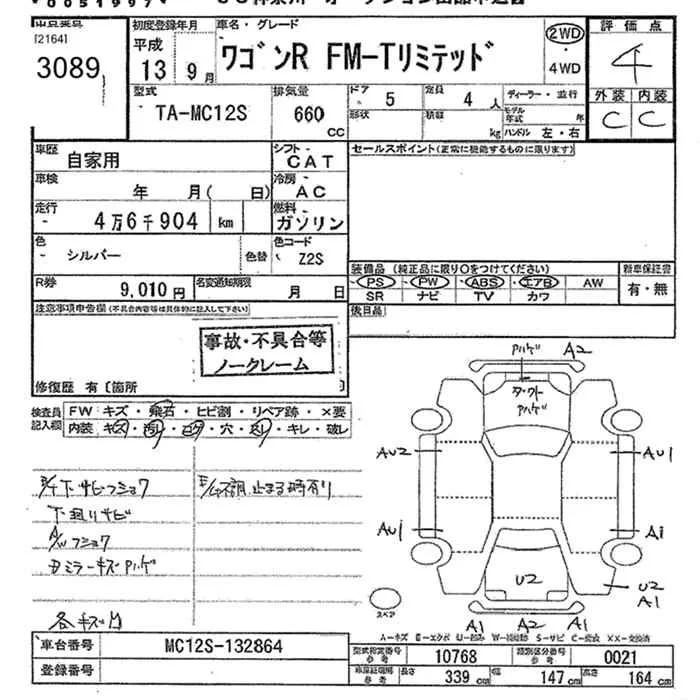 *0051997*
[2164]
3089
初度登録年月 車名・グレード 評価点
平成
13 9月 ワゴンR FM-Tリミテッド 2WD ・ 4WD 4
外装 内装
C C
型式 排気量 ドア 定員 ディーラー・並行
TA-MC12S 660 CC 5 4人
形状 積載 kg モデル年式 年
ハンドル 左・右
車歴 自家用 シフト CAT
セールスポイント(正常に機能するものに限ります)
車検 年 月( 日) 冷房 AC
走行 4万6千904 km 燃料 ガソリン
色 シルバー 色替 色コード Z2S
装備品(純正品に限り○をつけてください) 新車保証書
PS PW ABS エアB AW 有・無
SR ナビ TV カワ
R券 9,010円 名変通知期限 月 日
注意事項申告欄(不具合内容等は具体的に記入して下さい)
後日品
事故・不具合等
ノークレーム
修復歴 有〔箇所 〕
検査員記入欄 FW キズ・飛石・ヒビ割・リペア跡・×要
内装 キズ・汚れ・コゲ・穴・スレ・キレ・破レ
下廻りサビ
各キズ凹
Pハゲ A2
Pハゲ
AU2 AU1
AU1 A1
U2 U2
A1
A1 A2 A1
スペア
車台番号 MC12S-132864
登録番号
型式指定番号 参考 10768 類別区分番号 参考 0021
長さ 339 cm 幅 147 cm 高さ 164 cm